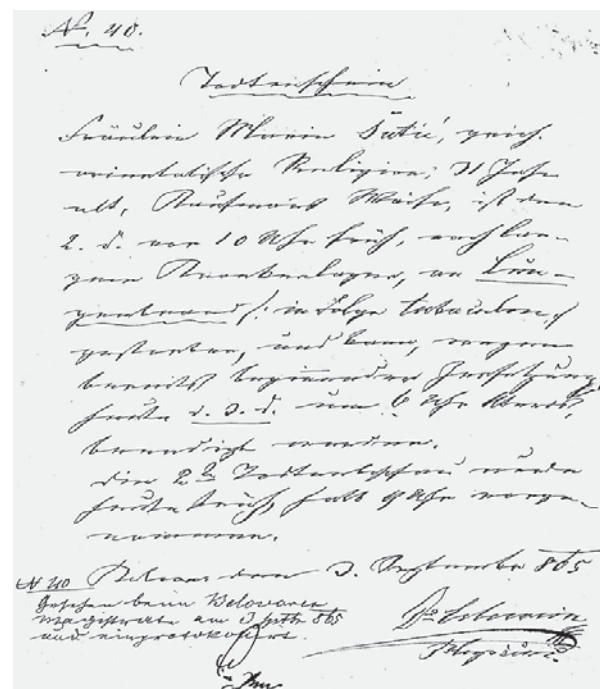 N. 40.
Todtenschein
Fräulein Marie Šutić, griech.
orientalische Religion, 31 Jahr
alt, Kaufmanns Waise, ist den
2. d. vor 10 Uhr früh, nach lan-
gem Krankenlager, an Lun-
genbrand /: in Folge tuberculose :/
gestorben, und kann, wegen
bereits beginnender Zersetzung
heute d. 3. d. um 6 Uhr Abends,
beerdigt werden.
Die 2te Todtenbeschau wurde
heute früh, halb 9 Uhr vorge-
nommen.
Belovar den 3. September 865
N 40
Gesehen beim Belovarer
Magistrate am 3 Sptb 865
und einprotokolirt.